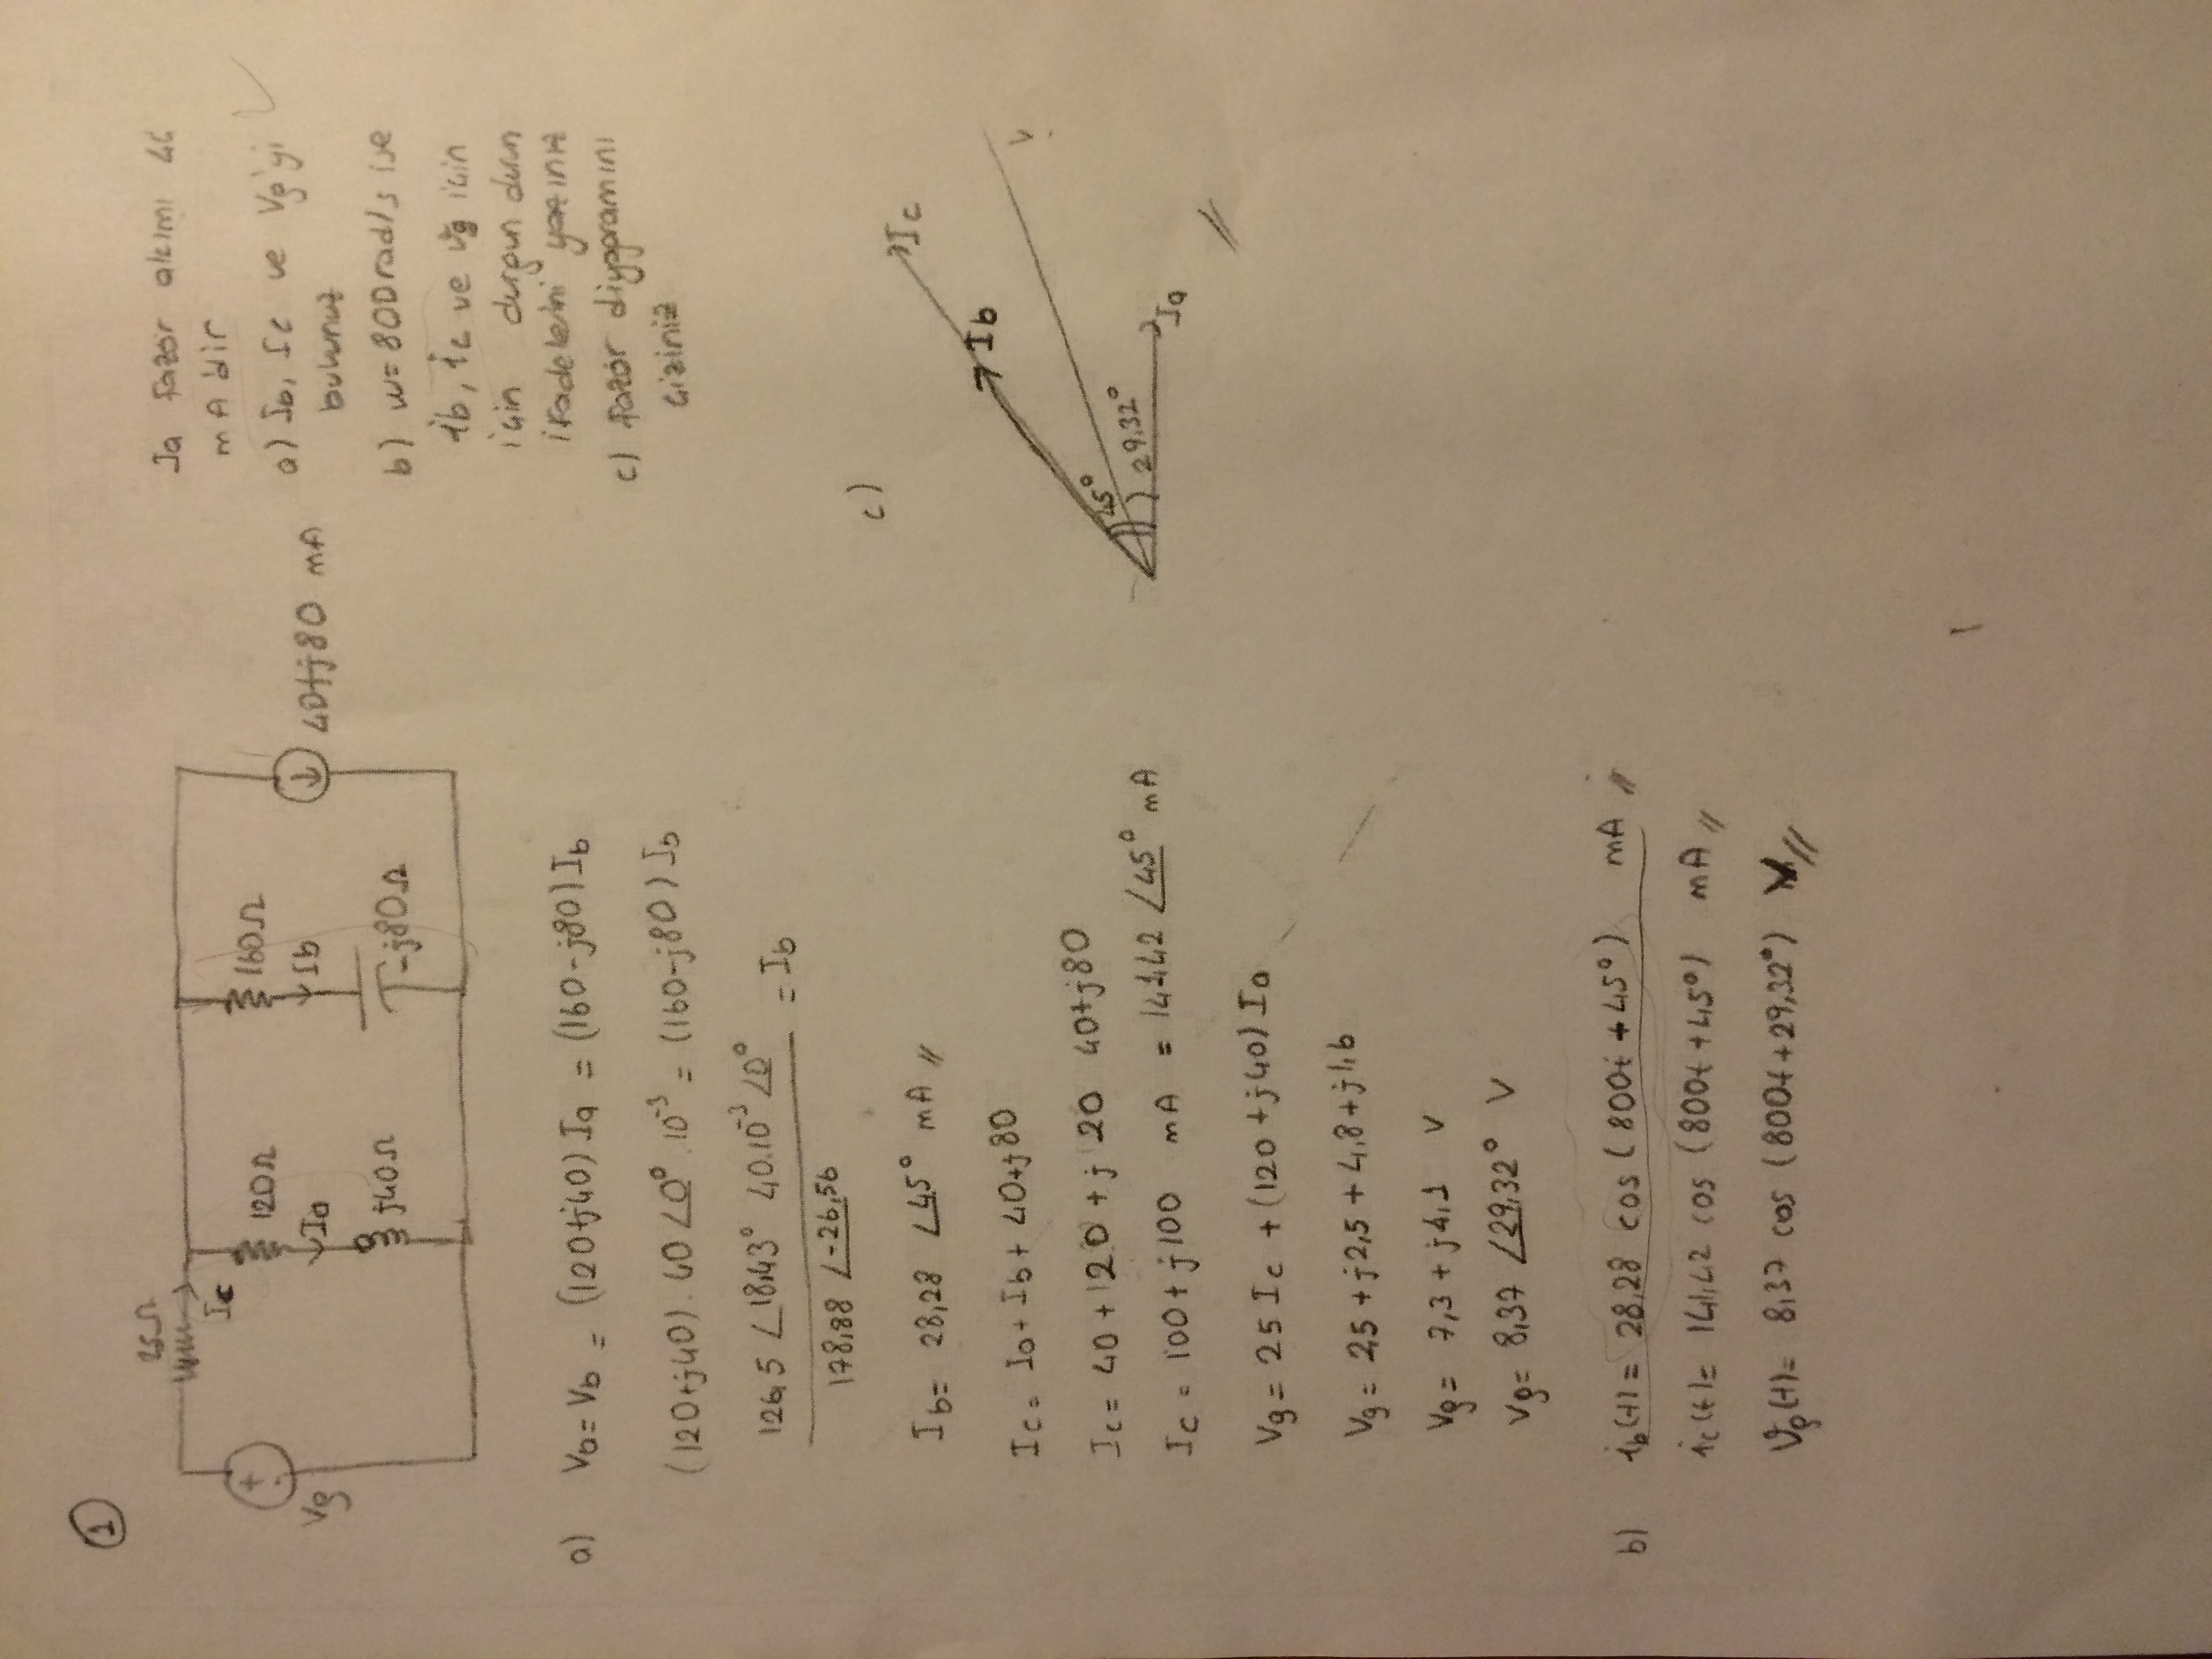 1
25Ω
Ic
Vg
120Ω
Ia
j40Ω
160Ω
Ib
-j80Ω
40+j80 mA
Ia fazör akımı
mA dir
a) Ib, Ic ve Vg'yi
bulunuz
b) w=800rad/s ise
ib, ic ve vg için
için durgun durum
ifadelerini yazınız
c) fazör diyagramını
çiziniz
a) Va=Vb = (120+j40) Ia = (160-j80) Ib
(120+j40) . 40 ∠0° . 10⁻³ = (160-j80) Ib
126,5 ∠18,43° 40.10⁻³ ∠0°
= Ib
178,88 ∠-26,56
Ib= 28,28 ∠45° mA //
Ic= Ia+ Ib+ 40+j80
Ic= 40+120+j 20 40+j80
Ic= 100+j100 mA = 141,42 ∠45° mA
Vg= 25 Ic + (120+j40) Ia
Vg= 2,5+j2,5+4,8+j1,6
Vg= 7,3+j4,1 V
Vg= 8,37 ∠29,32° V
c)
Ic
Ib
V
45°
29,32°
Ia
//
b) ib(t)= 28,28 cos (800t+45°) mA //
ic(t)= 141,42 cos (800t+45°) mA //
vg(t)= 8,37 cos (800t+29,32°) V //